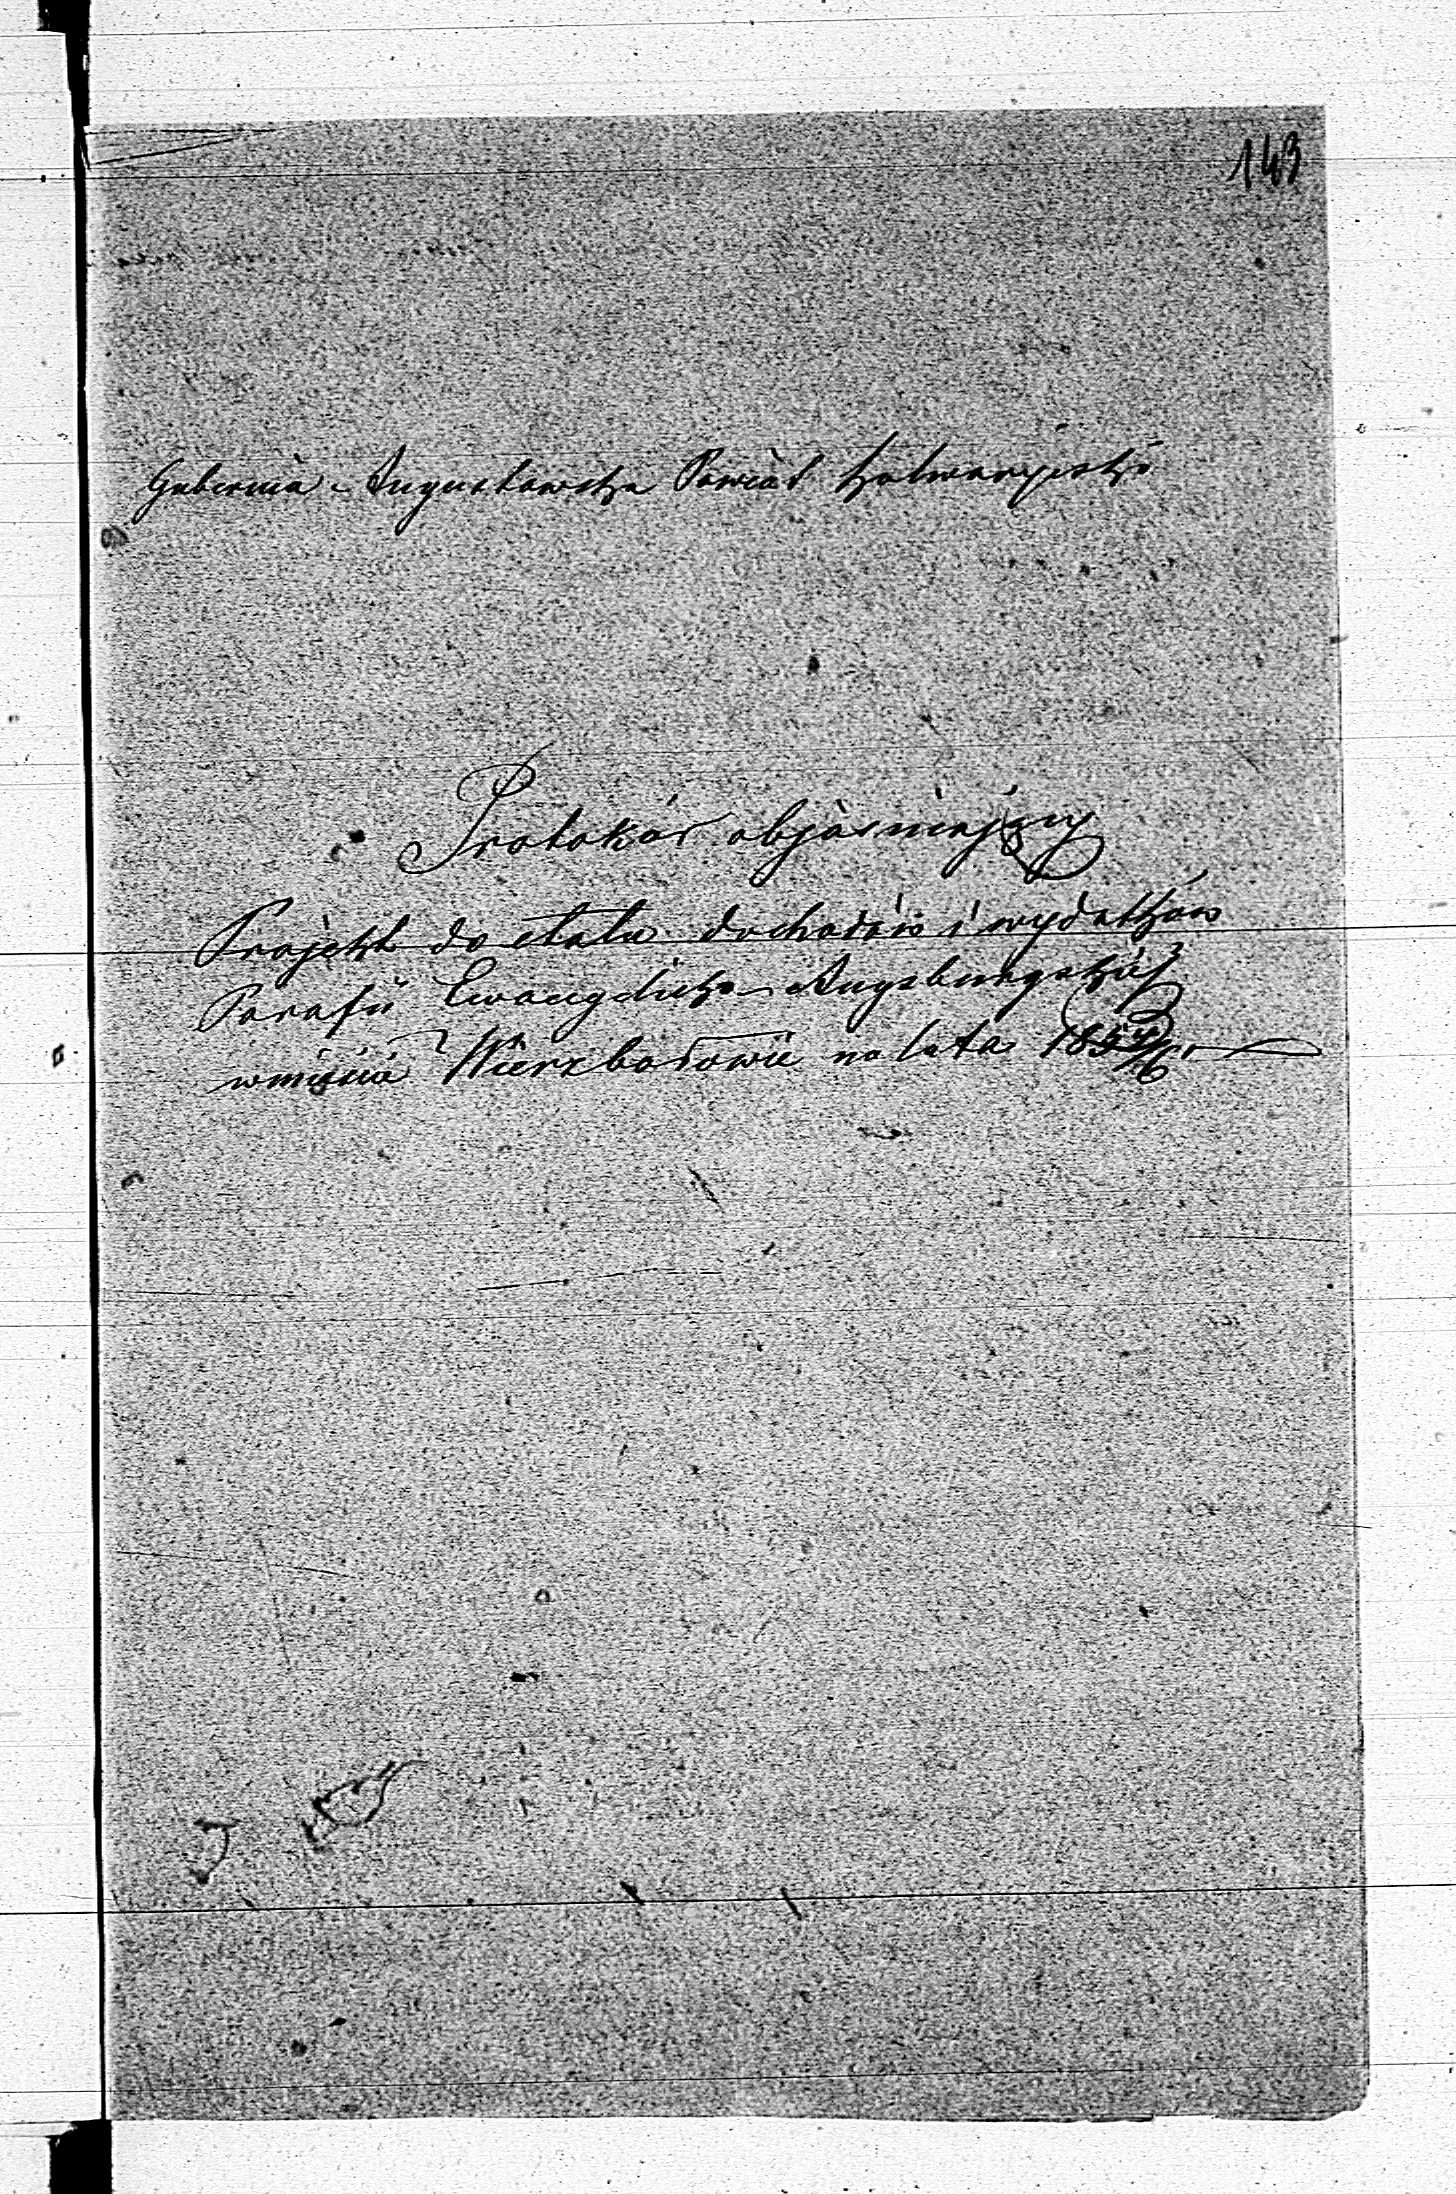 143
Gubernia Augustowska Powiat Kalwaryjski
Protokół objaśniający
Projekt do etatu dochodów i wydatków
Parafii Ewangelicko Augsburgskiéj
w mieście Wierzbołowie na lata